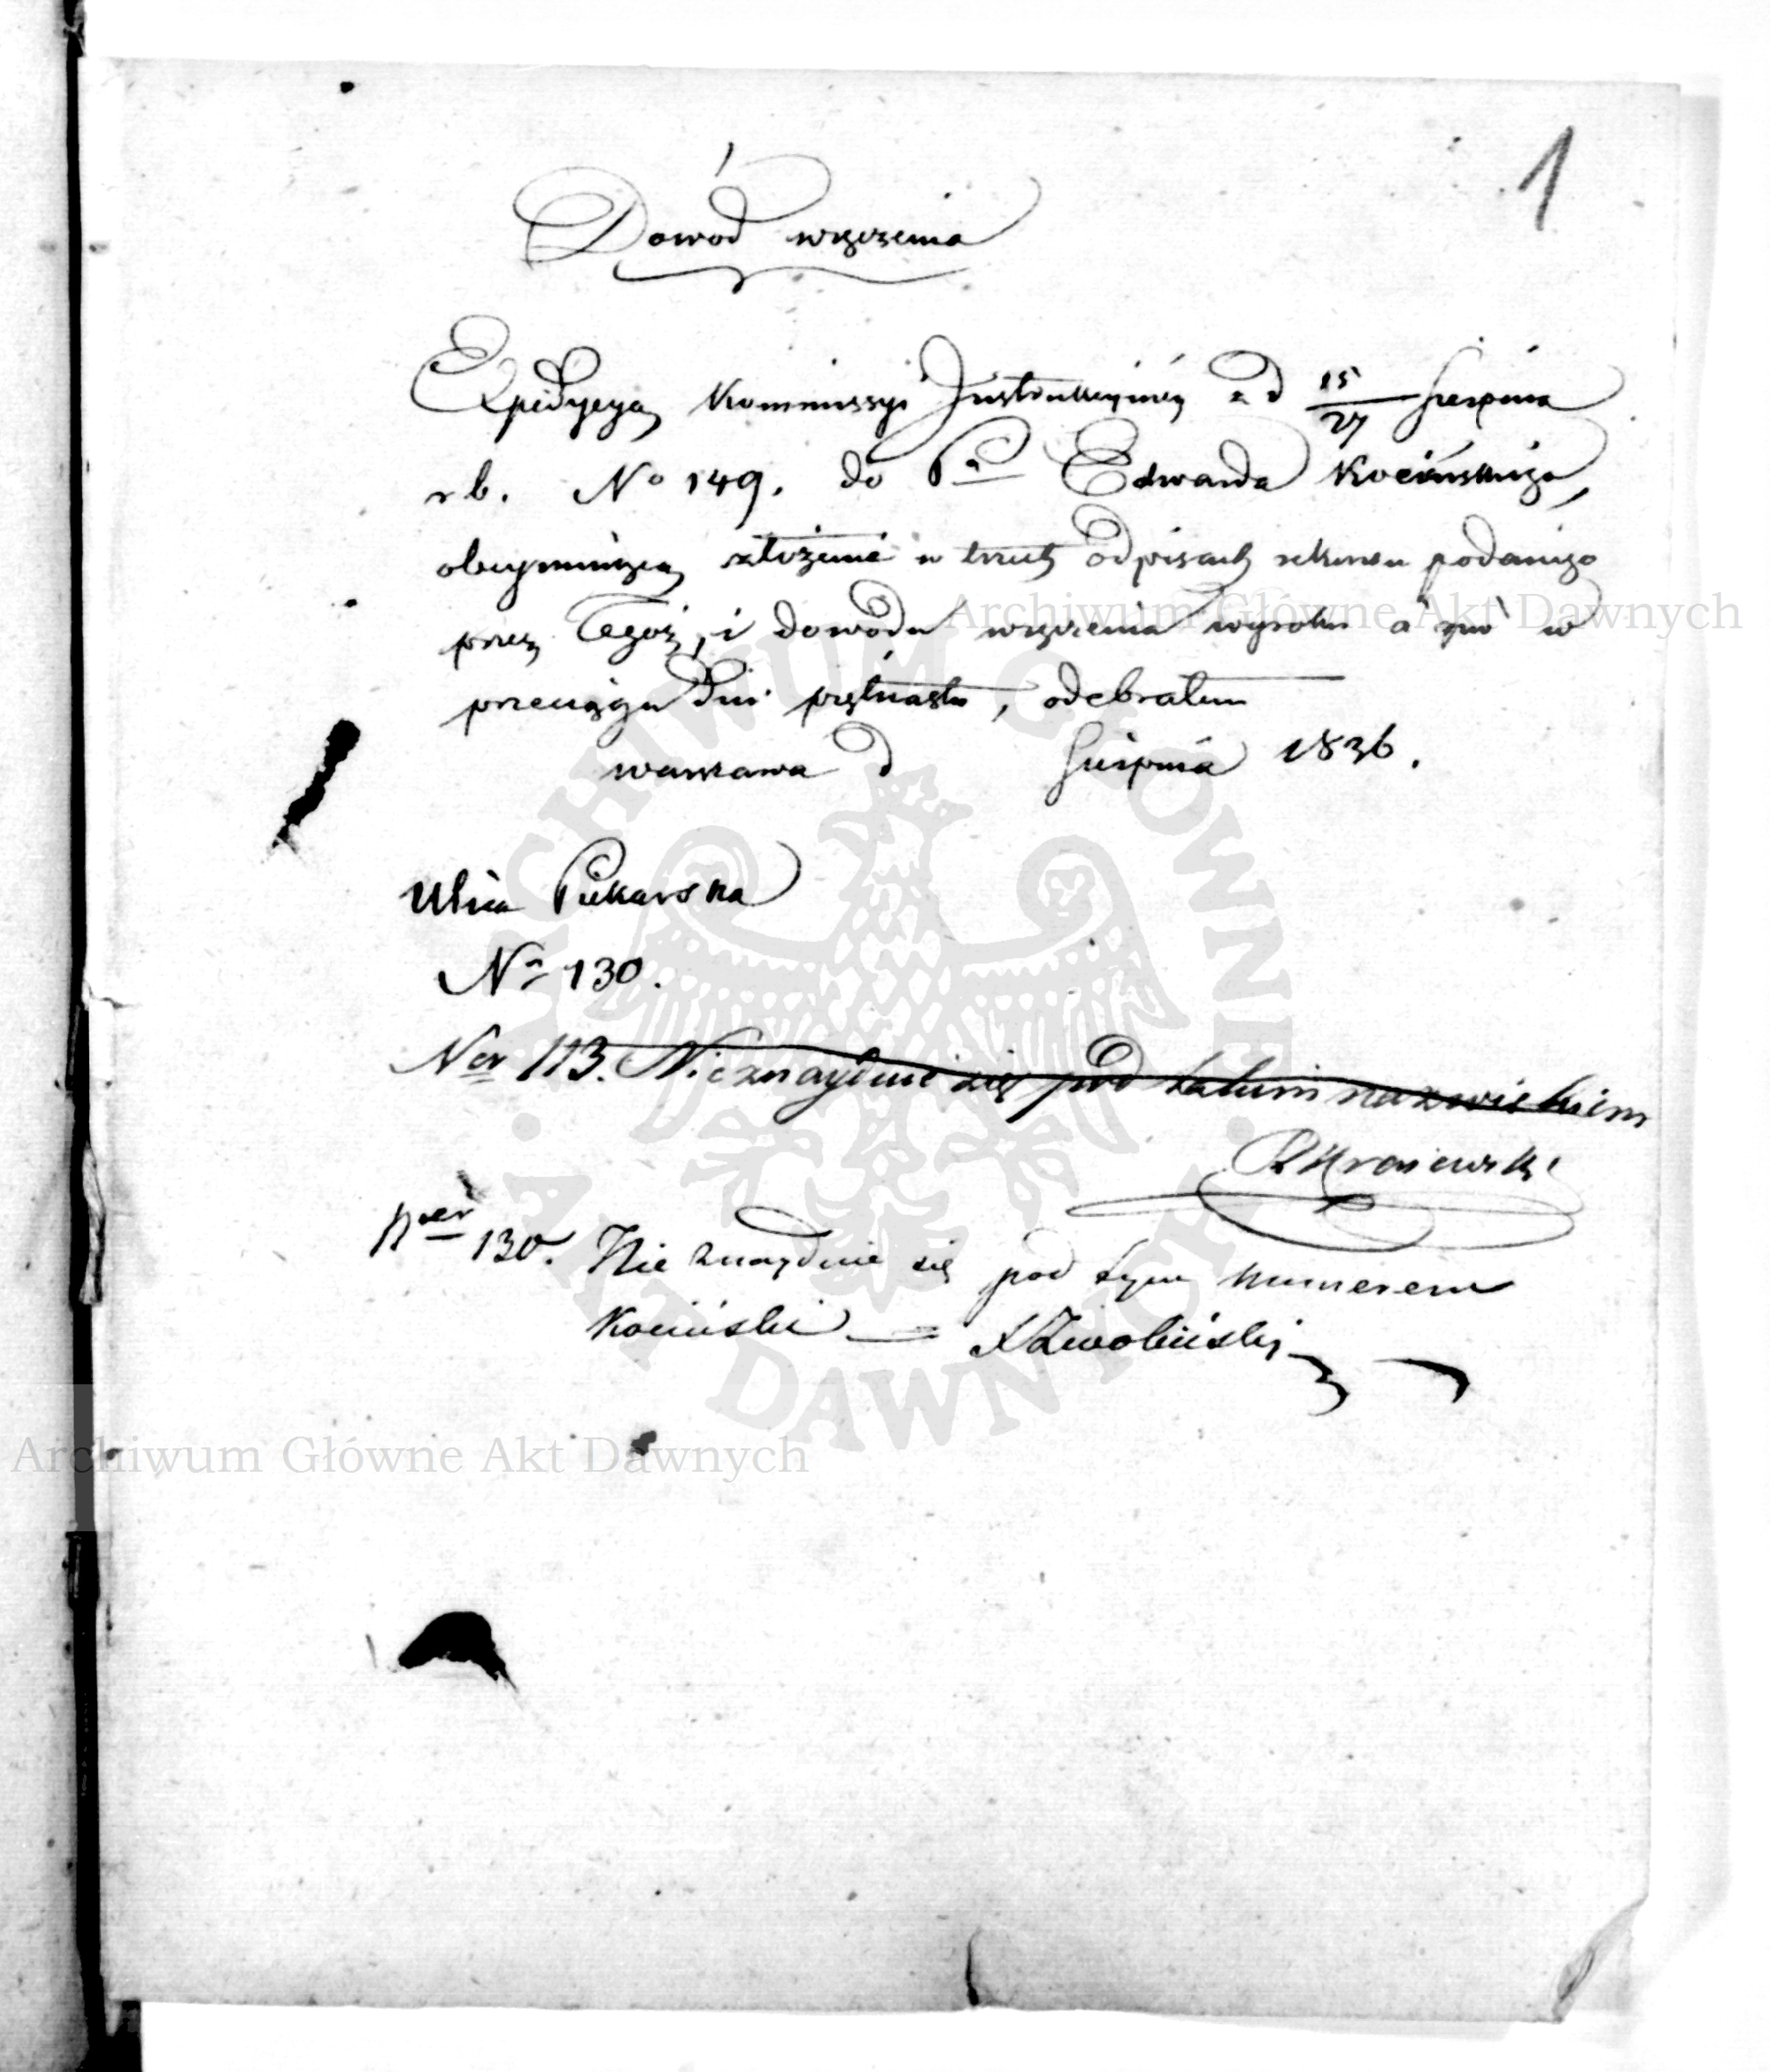 1
Dowód wręczenia
Expedycyą Kommissyi Instrukcyiney z d 15/27 Sierpnia
r b. No 149. do Pa Edwarda Kocińskiego,
obeymuiącą złożenie w trzech odpisach rekursu podanego
przez Tegoż, i dowodu wręczenia wyroku a to w
przeciągu dni piętnastu, odebrałem
Warszawa d Sierpnia 1836.
Ulica Piekarska
No 130.
Ner 113. Nieznayduie się pod takim nazwiskiem
Krajewski
Nver 130. Nie znayduie się pod tym numerem
Kociński = Zwoliński
Archiwum Główne Akt Dawnych
Archiwum Główne Akt Dawnych
ARCHIWUM GŁÓWNE · AKT DAWNYCH ·